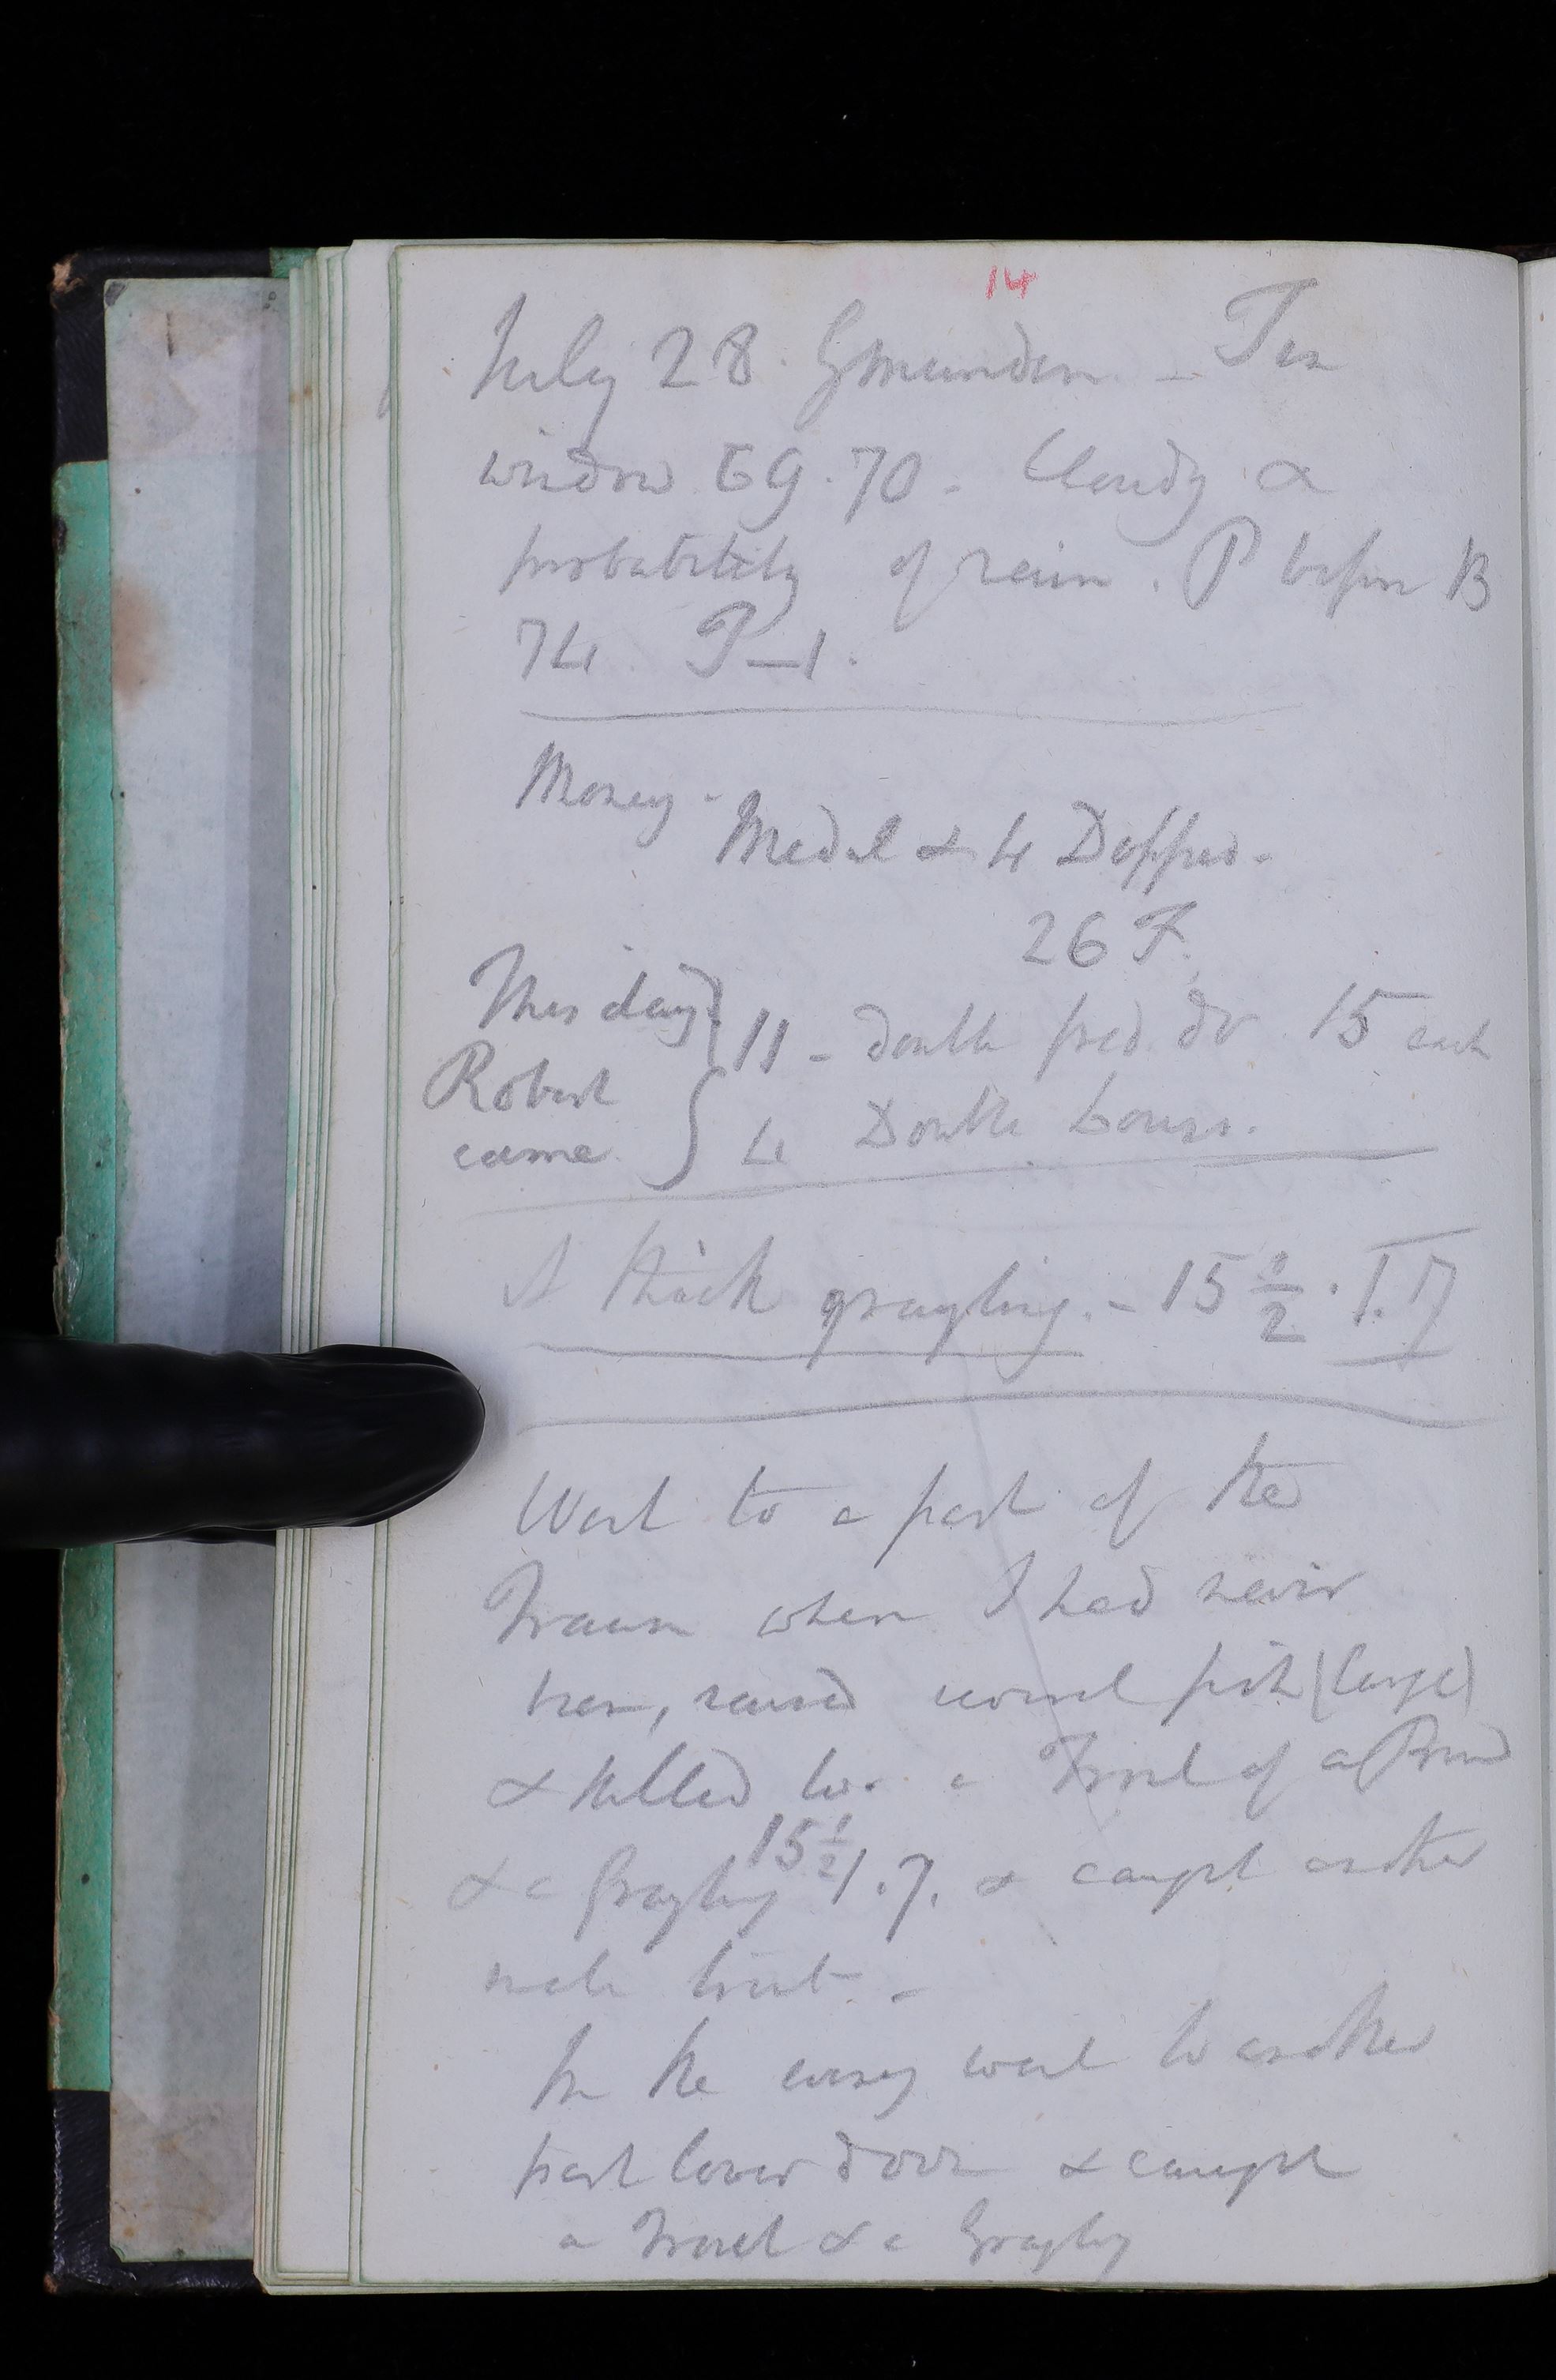 14
July 28. Gmunden - Ten
window 69.70. Cloudy &
probability of rain. P before B
74. P-1.
Money-
Medal & 4 Dopfred-
26 F.
This day Robert came } 11 - double fred. do 15 each
4 Double Louis.
A thick grayling. - 15 1/2 . 1.7
Went to a part of the
Traun where I had never
been, raised several fish (large)
& killed two a Trout of a Pound
& a Grayling 15 1/2 1.7. & caught another
trout. -
In the eveng went to another
part lower down & caught
a Trout & a Grayling